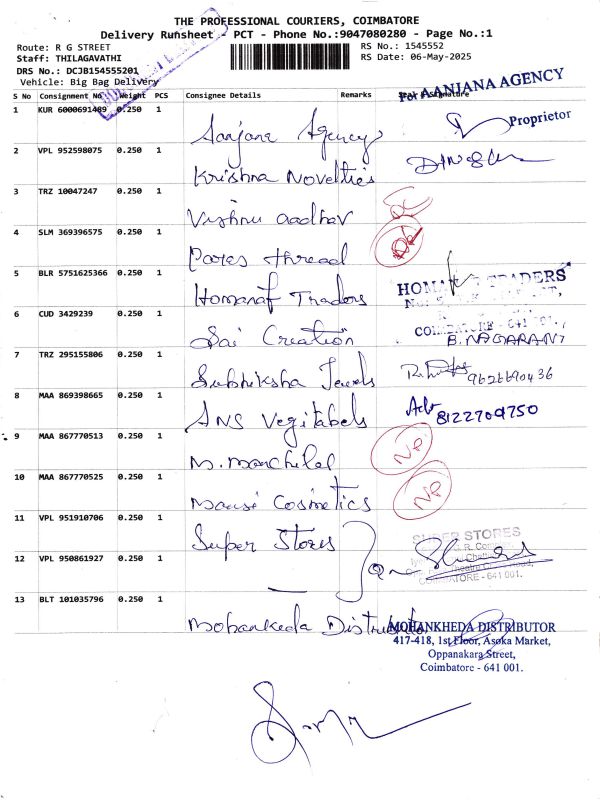 THE PROFESSIONAL COURIERS, COIMBATORE
Delivery Runsheet - PCT - Phone No.:9047080280 - Page No.:1
Route: R G STREET
RS No.: 1545552
Staff: THILAGAVATHI
RS Date: 06-May-2025
DRS No.: DCJB154555201
Vehicle: Big Bag Delivery
For AANJANA AGENCY
S No Consignment No Weight PCS Consignee Details Remarks
1 KUR 6000691489 0.250 1 Aanjana Agency
Proprietor
2 VPL 952598075 0.250 1 Krishna Novelties
3 TRZ 10047247 0.250 1 Vishnu aadhav
4 SLM 369396575 0.250 1 Pares thread
5 BLR 5751625366 0.250 1 Homaraf Traders
TRADERS
6 CUD 3429239 0.250 1 Sai Creation
COIMBATORE - 641
B. NAGARANI
7 TRZ 295155806 0.250 1 Subhiksha Jewels
9626690436
8 MAA 869398665 0.250 1 ANS Vegitabels
8122709750
9 MAA 867770513 0.250 1 M. Manchilal NP
10 MAA 867770525 0.250 1 Mansi Cosmetics NP
11 VPL 951910706 0.250 1 Super Stores
SUPER STORES
12 VPL 950861927 0.250 1
COIMBATORE - 641 001.
13 BLT 101035796 0.250 1 Mohankheda Distributor
MOHANKHEDA DISTRIBUTOR
417-418, 1st Floor, Asoka Market,
Oppanakara Street,
Coimbatore - 641 001.